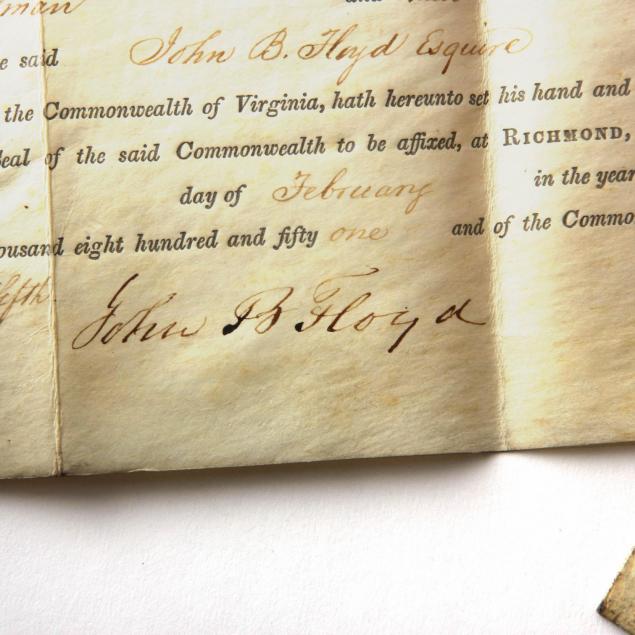 man
e said John B. Floyd Esquire
the Commonwealth of Virginia, hath hereunto set his hand and
Seal of the said Commonwealth to be affixed, at RICHMOND,
day of February in the year
ousand eight hundred and fifty one and of the Commo
fifth.
John B Floyd